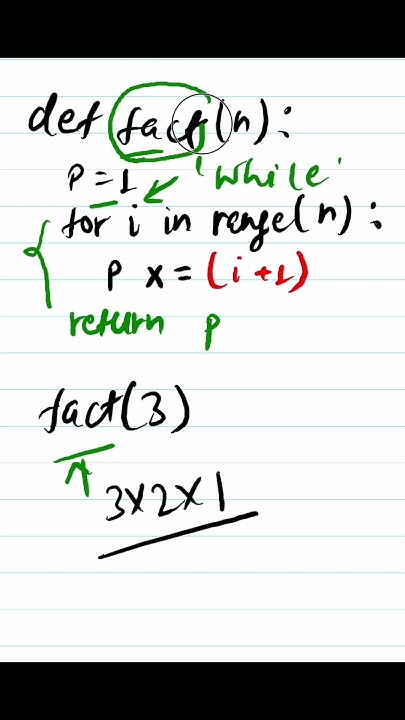 def fact(n):
p = 1 'while'
for i in range(n):
p x = (i+1)
return p
fact(3)
3x2x1